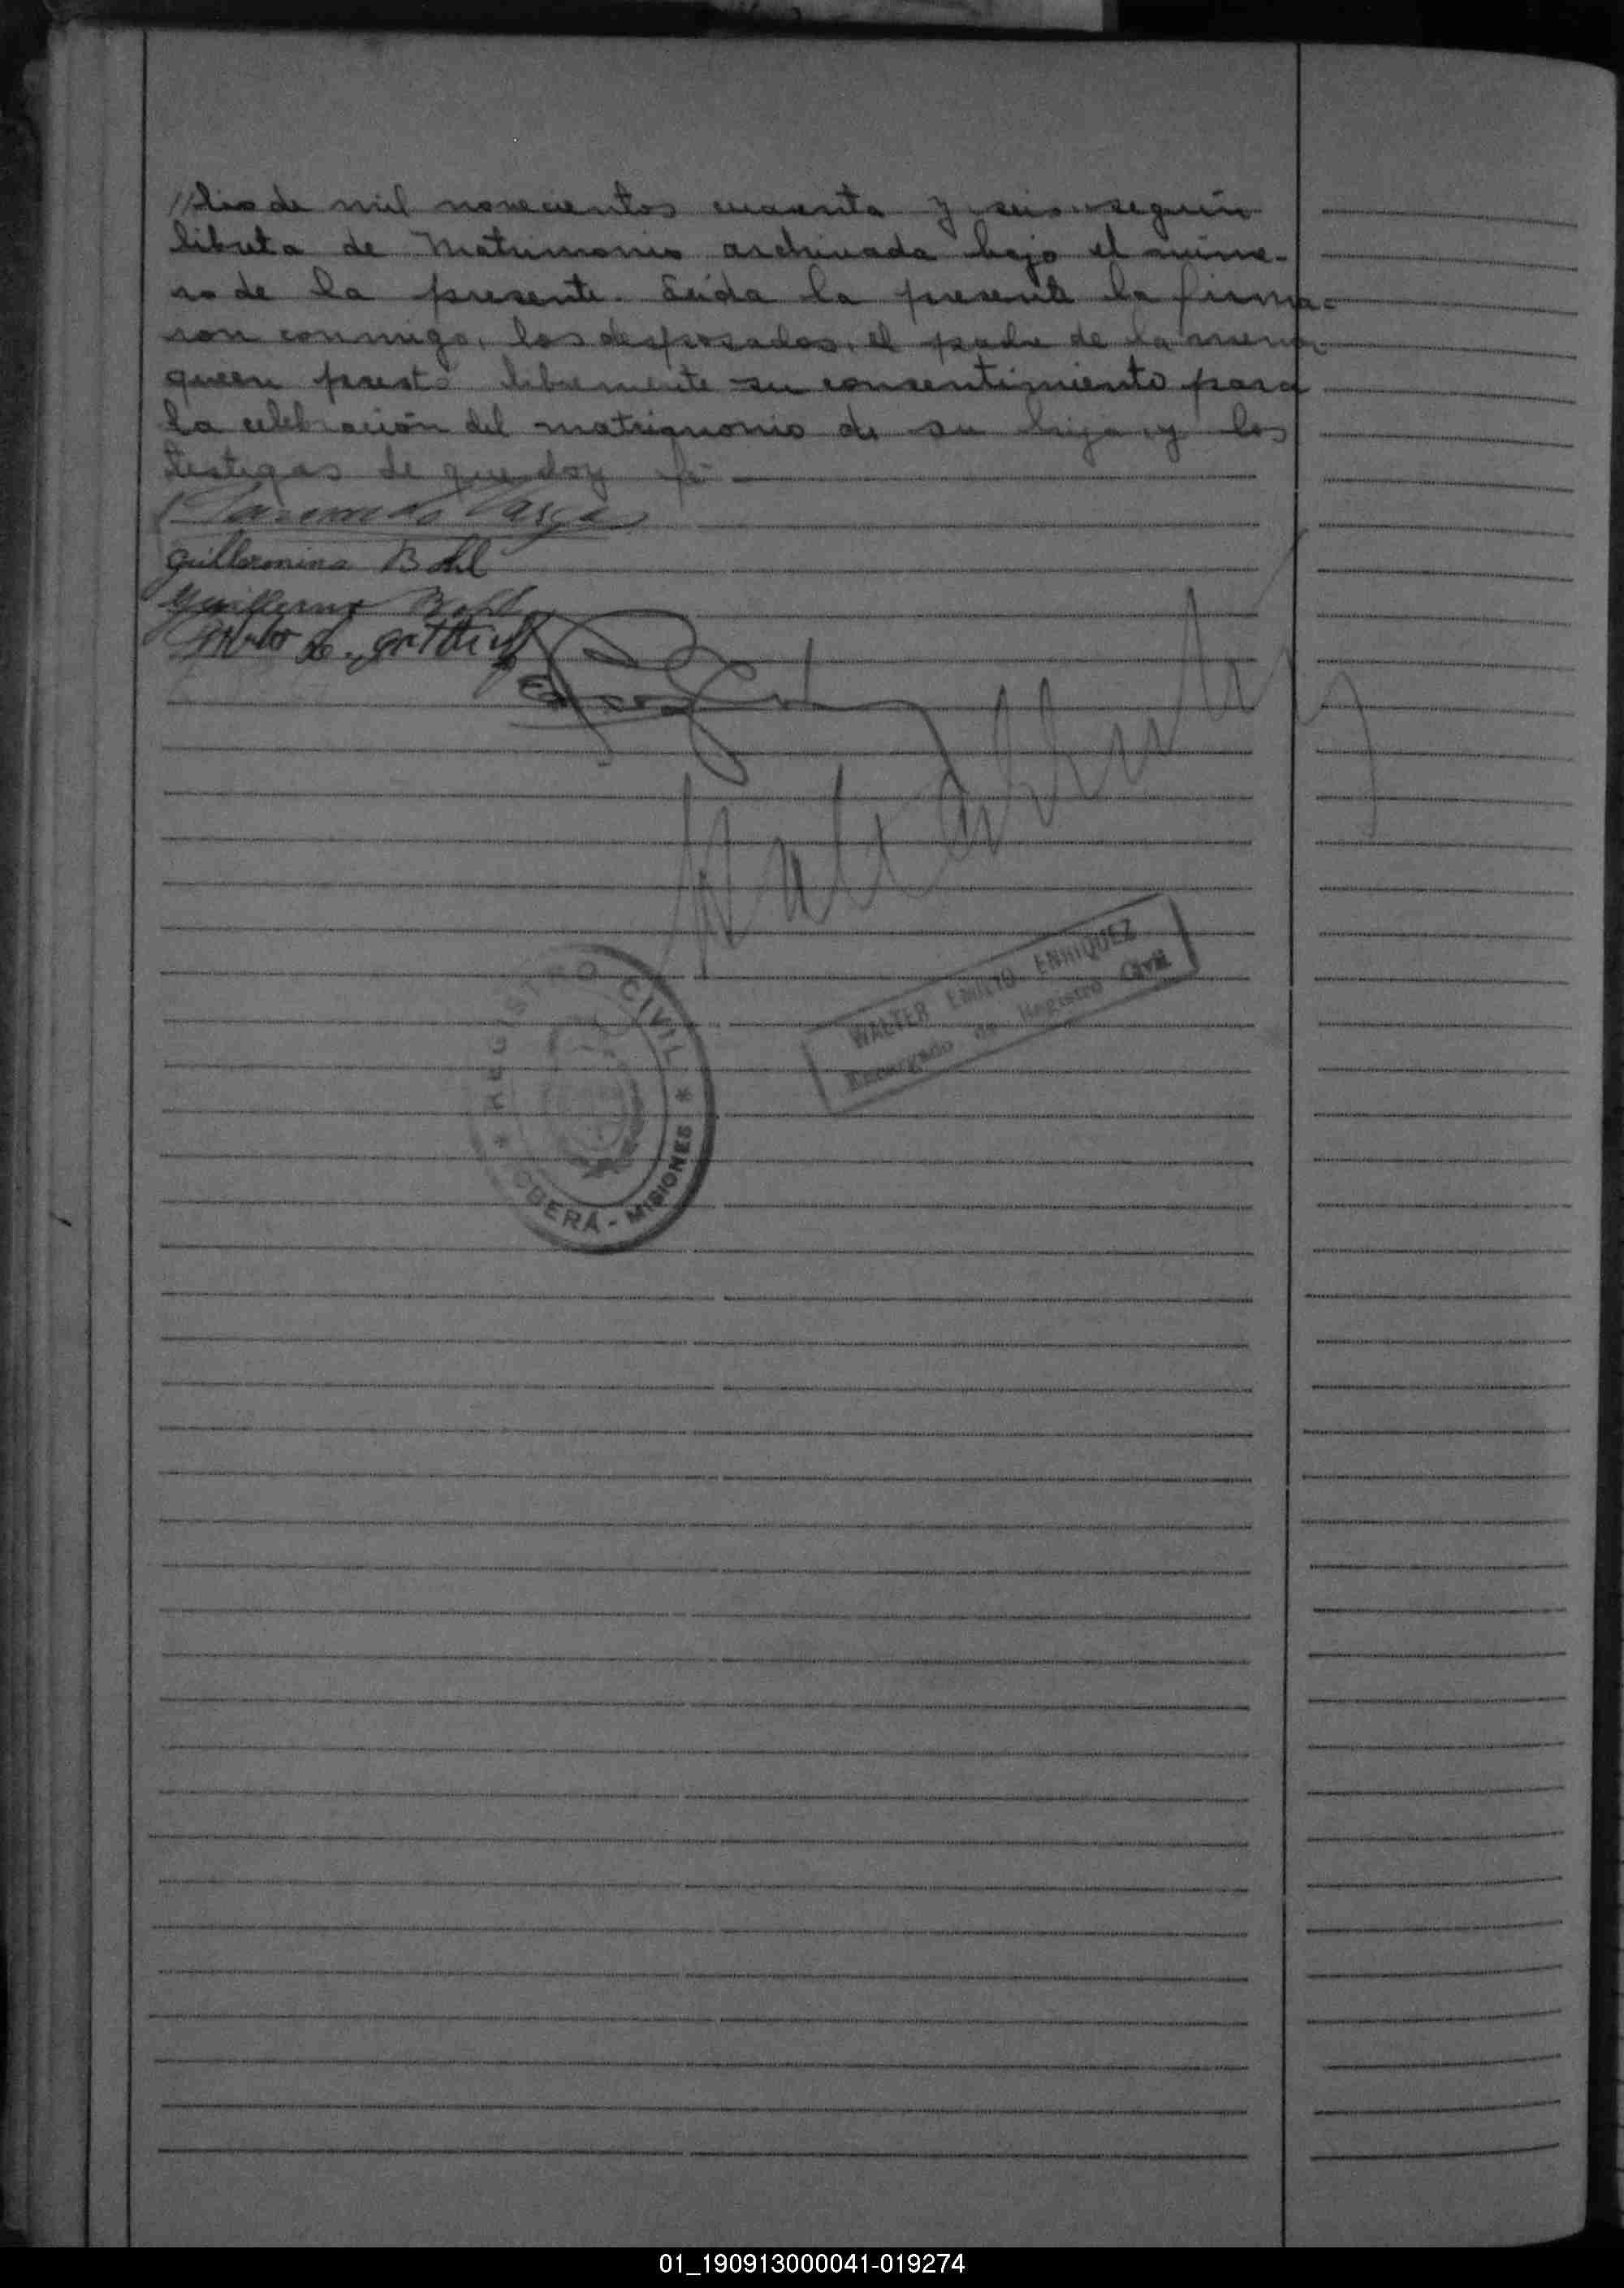 //lio de mil novecientos cuarenta y seis según
libreta de Matrimonio archivada bajo el núme-
ro de la presente. Leída la presente la firma-
ron conmigo, los desposados, el padre de la menor
quien prestó libremente su consentimiento para
la celebración del matrimonio de su hija y los
testigos de que doy fé
Vargas
Guillermina Bohl
Guillermo Bohl
WALTER EMILIO ENRIQUEZ
Encargado de Registro Civil
* REGISTRO CIVIL *
OBERÁ - MISIONES
01_190913000041-019274